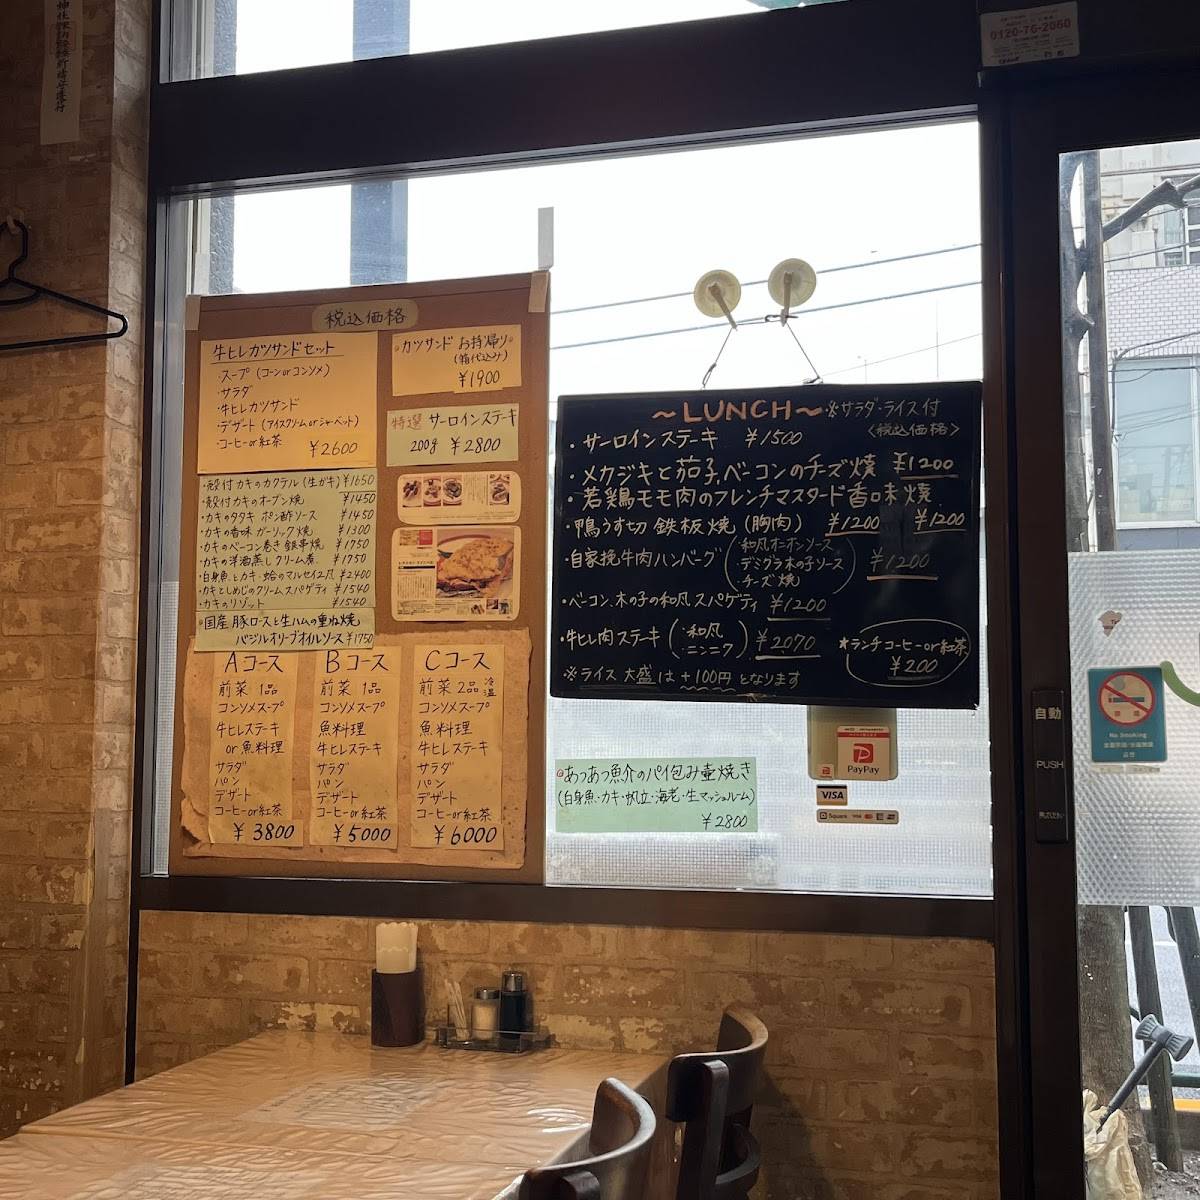 0120-76-2060
税込価格
牛ヒレカツサンドセット
・スープ (コーンorコンソメ)
・サラダ
・牛ヒレカツサンド
・デザート (アイスクリームorシャーベット)
・コーヒーor紅茶 ¥2600
カツサンド お持帰り
(箱代込み)
¥1900
特選 サーロインステーキ
200g ¥2800
・殻付カキのカクテル (生ガキ) ¥1650
・殻付カキのオーブン焼 ¥1450
・カキのタタキ ポン酢ソース ¥1450
・カキの香味ガーリック焼 ¥1300
・カキのベーコン巻き鉄串焼 ¥1750
・カキの洋酒蒸しクリーム煮 ¥1750
・白身魚とカキ・蛤のマルセイユ風 ¥2400
・カキとしめじのクリームスパゲティ ¥1540
・カキのリゾット ¥1540
国産豚ロースと生ハムの重ね焼
バジルオリーブオイルソース ¥1750
Aコース
前菜1品
コンソメスープ
牛ヒレステーキ
or魚料理
サラダ
パン
デザート
コーヒーor紅茶
¥3800
Bコース
前菜1品
コンソメスープ
魚料理
牛ヒレステーキ
サラダ
パン
デザート
コーヒーor紅茶
¥5000
Cコース
前菜2品 冷温
コンソメスープ
魚料理
牛ヒレステーキ
サラダ
パン
デザート
コーヒーor紅茶
¥6000
～LUNCH～ ※サラダ・ライス付
〈税込価格〉
・サーロインステーキ ¥1500
・メカジキと茄子、ベーコンのチーズ焼 ¥1200
・若鶏モモ肉のフレンチマスタード香味焼
¥1200
・鴨うす切鉄板焼 (胸肉) ¥1200
・自家挽牛肉ハンバーグ
・和風オニオンソース
・デミグラ木の子ソース
・チーズ焼
¥1200
・ベーコン、木の子の和風スパゲティ ¥1200
・牛ヒレ肉ステーキ
・和風
・ニンニク
¥2070
★ランチコーヒーor紅茶
¥200
※ライス大盛は+100円となります
あつあつ魚介のパイ包み壷焼き
(白身魚・カキ・帆立・海老・生マッシュルーム)
¥2800
PayPay
VISA
Square VISA
自動
PUSH
禁煙
No Smoking